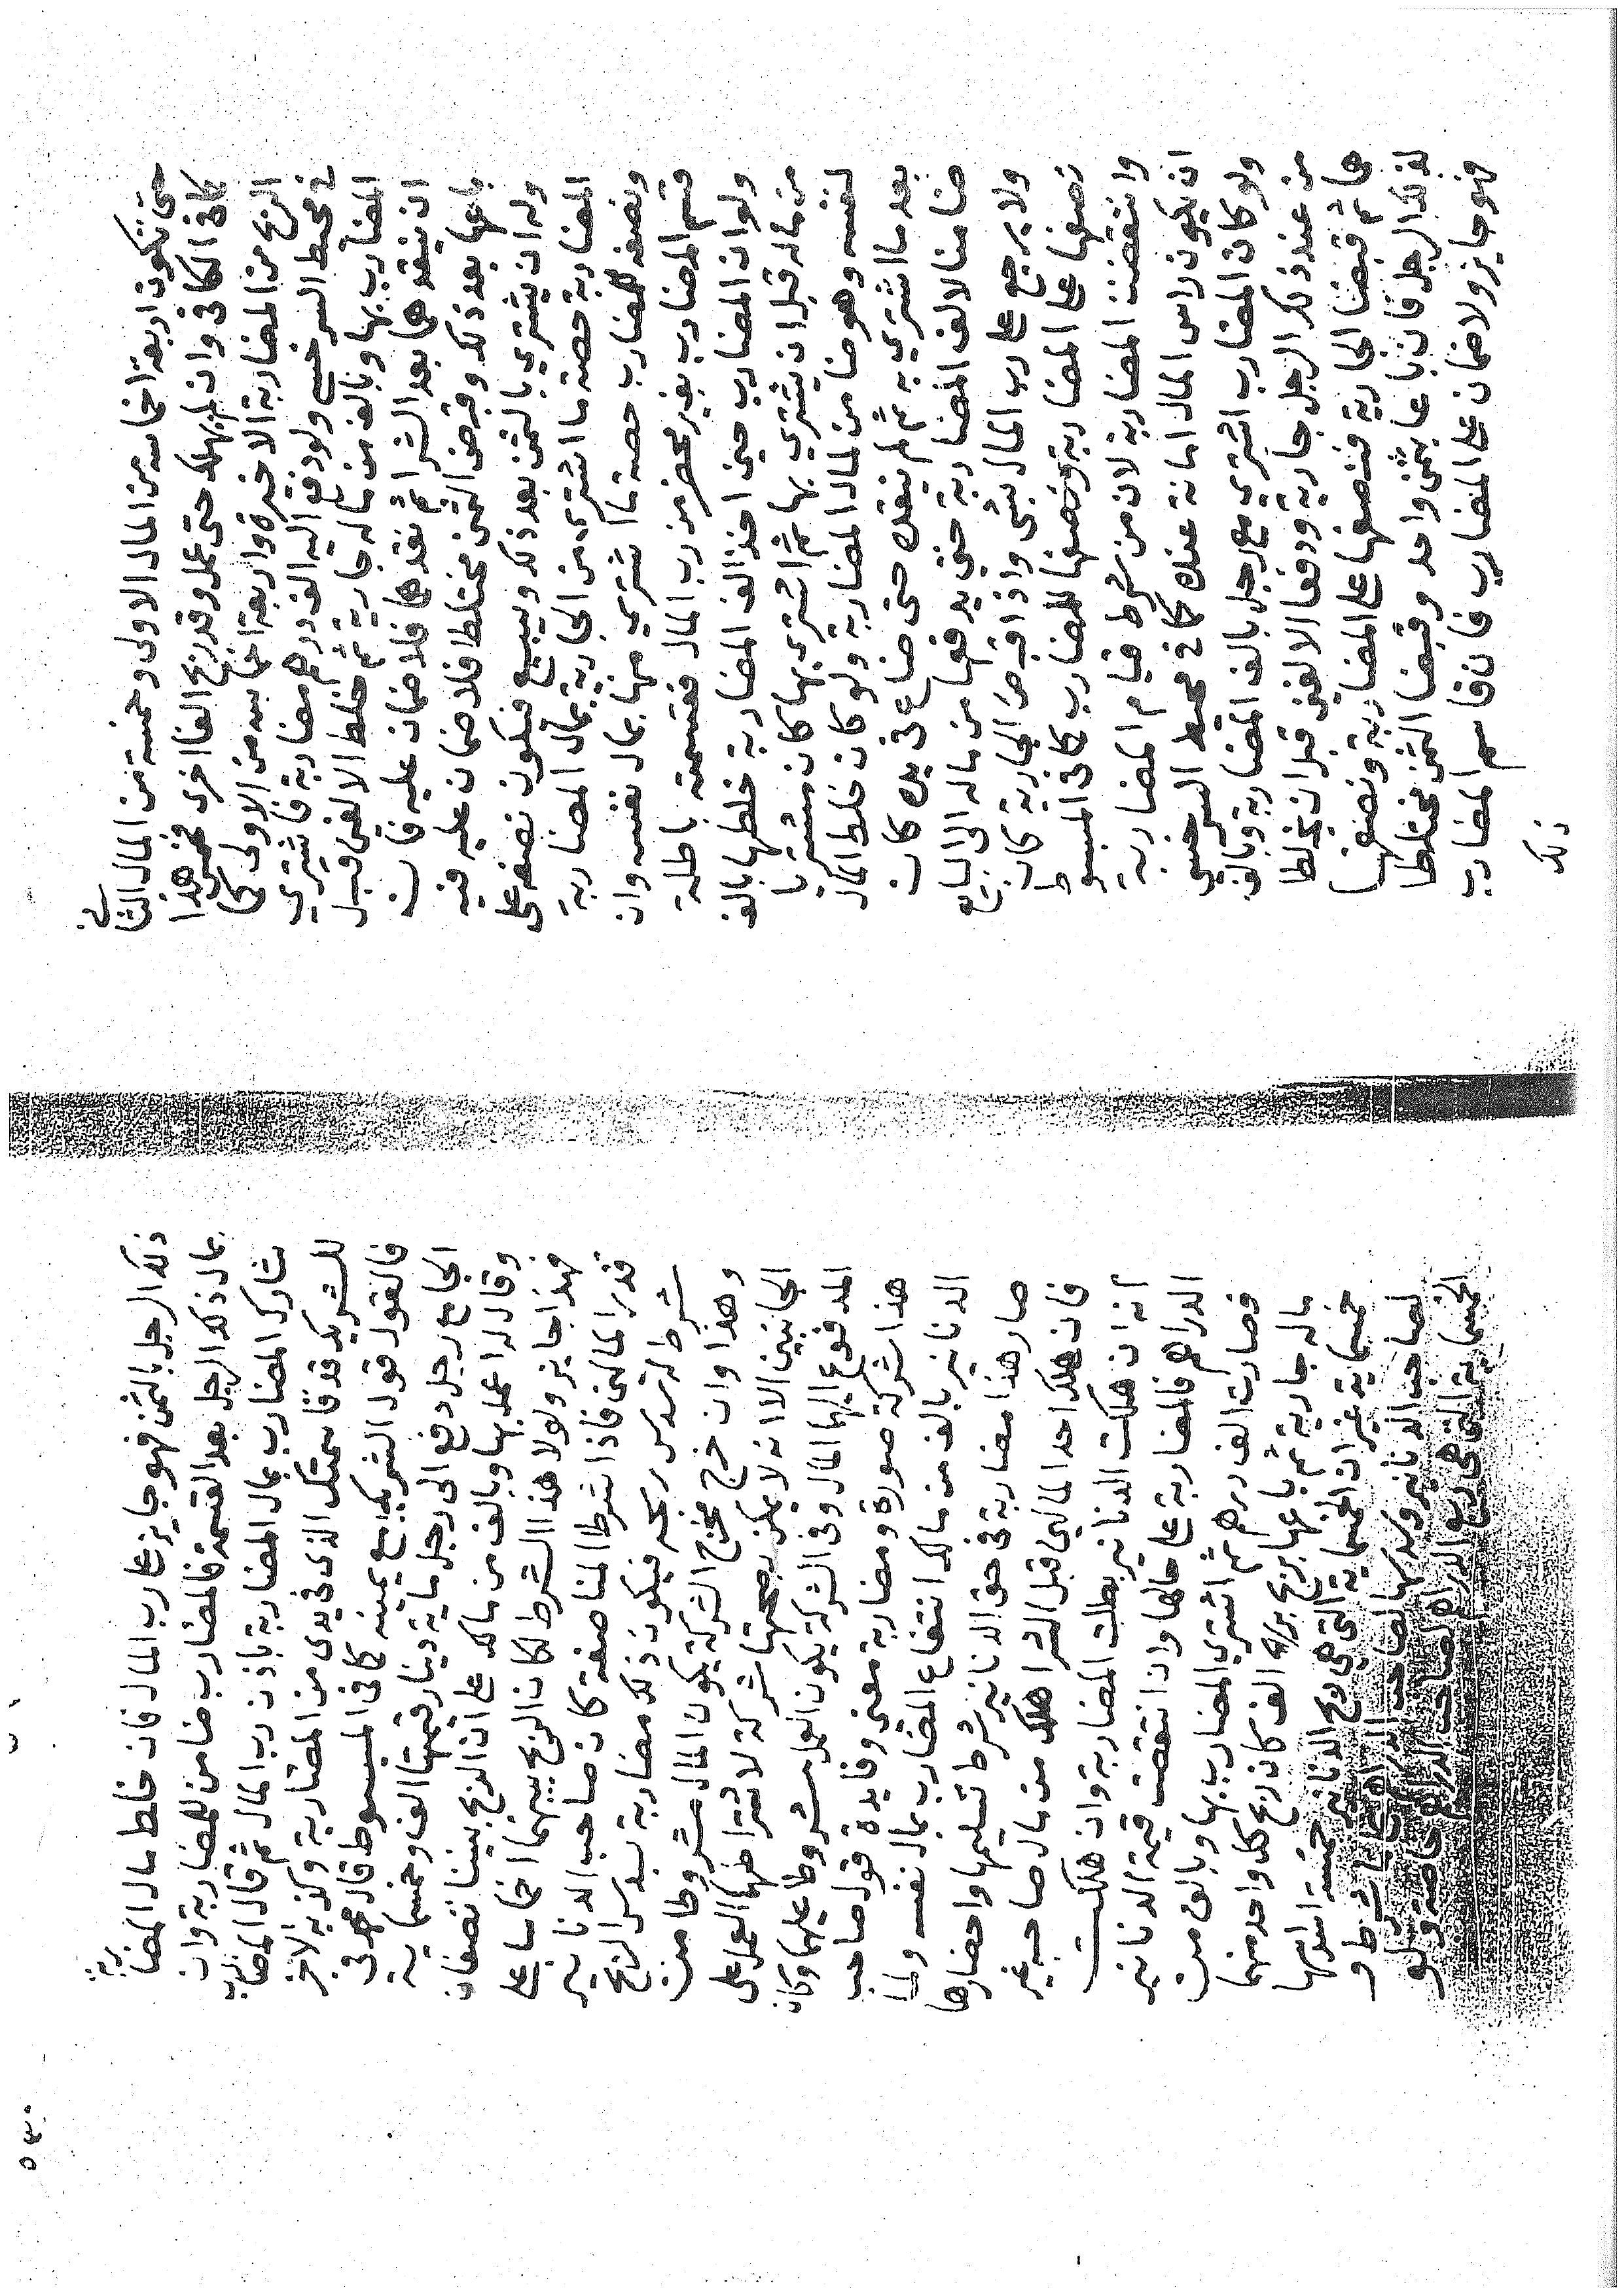 حتى تكون اربعة اخماسه من المال الاولى وخمسه من المال الثانى
كما فى الكافى وان لم يهلك حتى عمل وقد ربح الفا اخرى فخمس هذا
الربح من المضاربة الاخيرة واربعة اخماسه من الاولى كما
فى محيط السرخسى ولو دفع اليه الف درهم مضاربة فاشترى
المضارب بها وبالف من ماله جارية ثم خلط الالفين قبل
ان ينقدها بعد الشرا ثم نقدها فلا ضمان عليه فان
باعها بعد ذلك وقبض الثمن مختلطا فلا ضمان عليه فيه
وله ان يشترى بالثمن بعد ذلك ويبيع فيكون نصفه على
المضاربة حصة ما اشترى من الجارية بمال المضاربة
ونصفه للمضارب حصة ما اشترى منها بمال نفسه وان
قسم المضارب بغير محضر من رب المال فقسمته باطلة
ولو ان المضارب حين اخذ الف المضاربة خلطها بالف
من ماله قبل ان يشترى بها ثم اشترى بها كان مشتريا
لنفسه وهو ضامن لمال المضاربة ولو كان خلط المال
بعد ما اشترى به ثم لم ينقده حتى ضاع فى يده كان
ضامنا لالف المضاربة حتى يدفعها من ماله الى البايع
ولا يرجع على رب المال بشى واذا قبض الجارية كان
نصفها على المضاربة ونصفها للمضارب كما فى المبسوط
وانتقضت المضاربة لان من شرط قيام المضاربة
ان يكون راس المال امانة عنده كما فى محيط السرخسى
ولو كان المضارب اشترى مع رجل بالف المضاربة وبالف
من عند ذلك الرجل جارية ودفعا الالفين قبل ان يخلطا
هما ثم قبضا الجارية فنصفها على المضاربة ونصفها
لذلك الرجل فان باعا بثمن واحد وقبضا الثمن مختلطا
فهو جايز ولا ضمان على المضارب فان قاسم المضارب
ذلك
ذلك الرجل بالثمن فهو جايز على رب المال فان خلط مال المضاربة
بمال ذلك الرجل بعد القسمة فالمضارب ضامن للمضاربة وان
شارك المضارب بمال المضاربة باذن رب المال ثم قال المضارب
للشريك قد قاسمتك الذى فى يدى من المضاربة وكذبه الاخر
فالقول قول الشريك مع يمينه كما فى المبسوط قال محمد فى
الجامع رجل دفع الى رجل ماية دينار قيمتها الف وخمسماية
وقال له اعمل بها وبالف من مالك على ان الربح بيننا نصفان
فهذا جايز ولولا هذا الشرط لكان الربح بينهما اخماسا على
قدر المالين فاذا شرطا المناصفة كان صاحب الدنانير
شرط له سدس ربحه فيكون ذلك مضاربة بسدس الربح
وهذا وان خرج مخرج الشركة يكون المال مشروطا من
الجانبين الا انه لا يمكن تصحيحها شركة لاشتراطهما العمل على
المدفوع اليه المال وفى الشركة يكون العمل مشروطا عليهما وكان
هذا شركة صورة ومضاربة معنى وفايدة قول صاحب
الدنانير بالف من مالك انتفاع المضارب بمال نفسه ولما
صار هذا مضاربة فى حق الدنانير شرط تسليمها واحضارها
فان هلك احد المالين قبل الشرا هلك من مال صاحبه غير
انه ان هلكت الدنانير بطلت المضاربة وان هلكت
الدراهم فالمضاربة على حالها وان انتقصت قيمة الدنانير
فصارت الف درهم ثم اشترى المضارب بها وبالف من
ماله جارية ثم باعها بربح الف كان ربح كل واحد منهما
خمسماية غير ان الخمسماية التى هى ربح الدنانير خمسة اسداسها
لصاحب الدنانير وسدسها لصاحب الدراهم
الخمسماية التى هى ربح الدراهم لصاحب الدراهم خاصة ولو